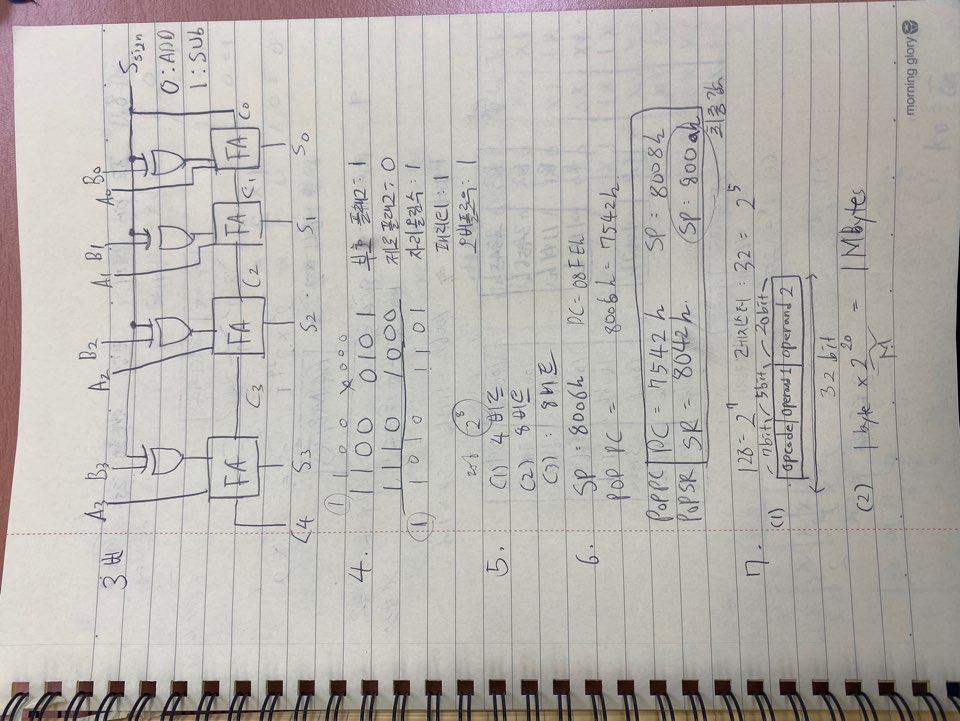 3번 A3 B3 A2 B2 A1 B1 A0 B0
S sign
0 : ADD
1 : SUb
FA C3 FA C2 FA C1 FA C0
C4 S3 S2 S1 S0
① 1 0 0 0 0 0
4. 1100 0101 부호 플래그 : 1
1110 1000 제로플래그 : 0
① 1010 1101 자리올림수 : 1
패리티 : 1
오버플로우 : 1
2⁸
5. (1) 4비트
(2) 8비트
(3) : 8비트
6. SP : 8006h PC = 08FEh
POP PC = 8006h = 7542h
POP PC PC = 7542h SP : 8008h
POP SR SR = 8042h. SP : 800ah
최종값
7. 128 = 2⁷ 레지스터 : 32 = 2⁵
7bit 5bit 20bit
(1) opcode operand 1 operand 2
32 bit
(2) 1 byte × 2²⁰ = 1 MBytes
M
morning glory